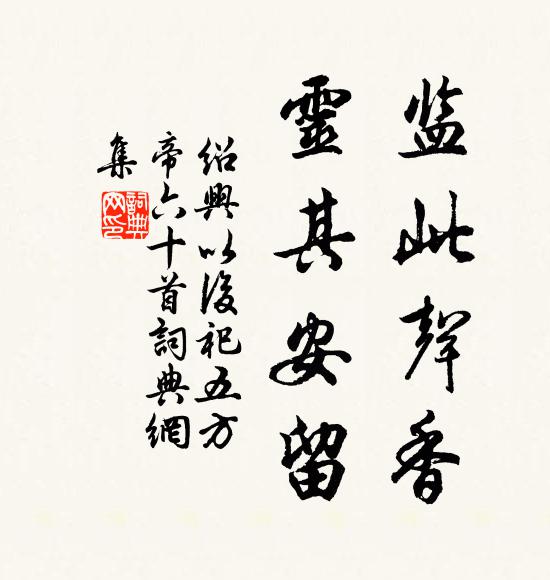 监此聲香
靈其安留
绍興以後祀五方
帝六十首詞典網
集
詞典网印